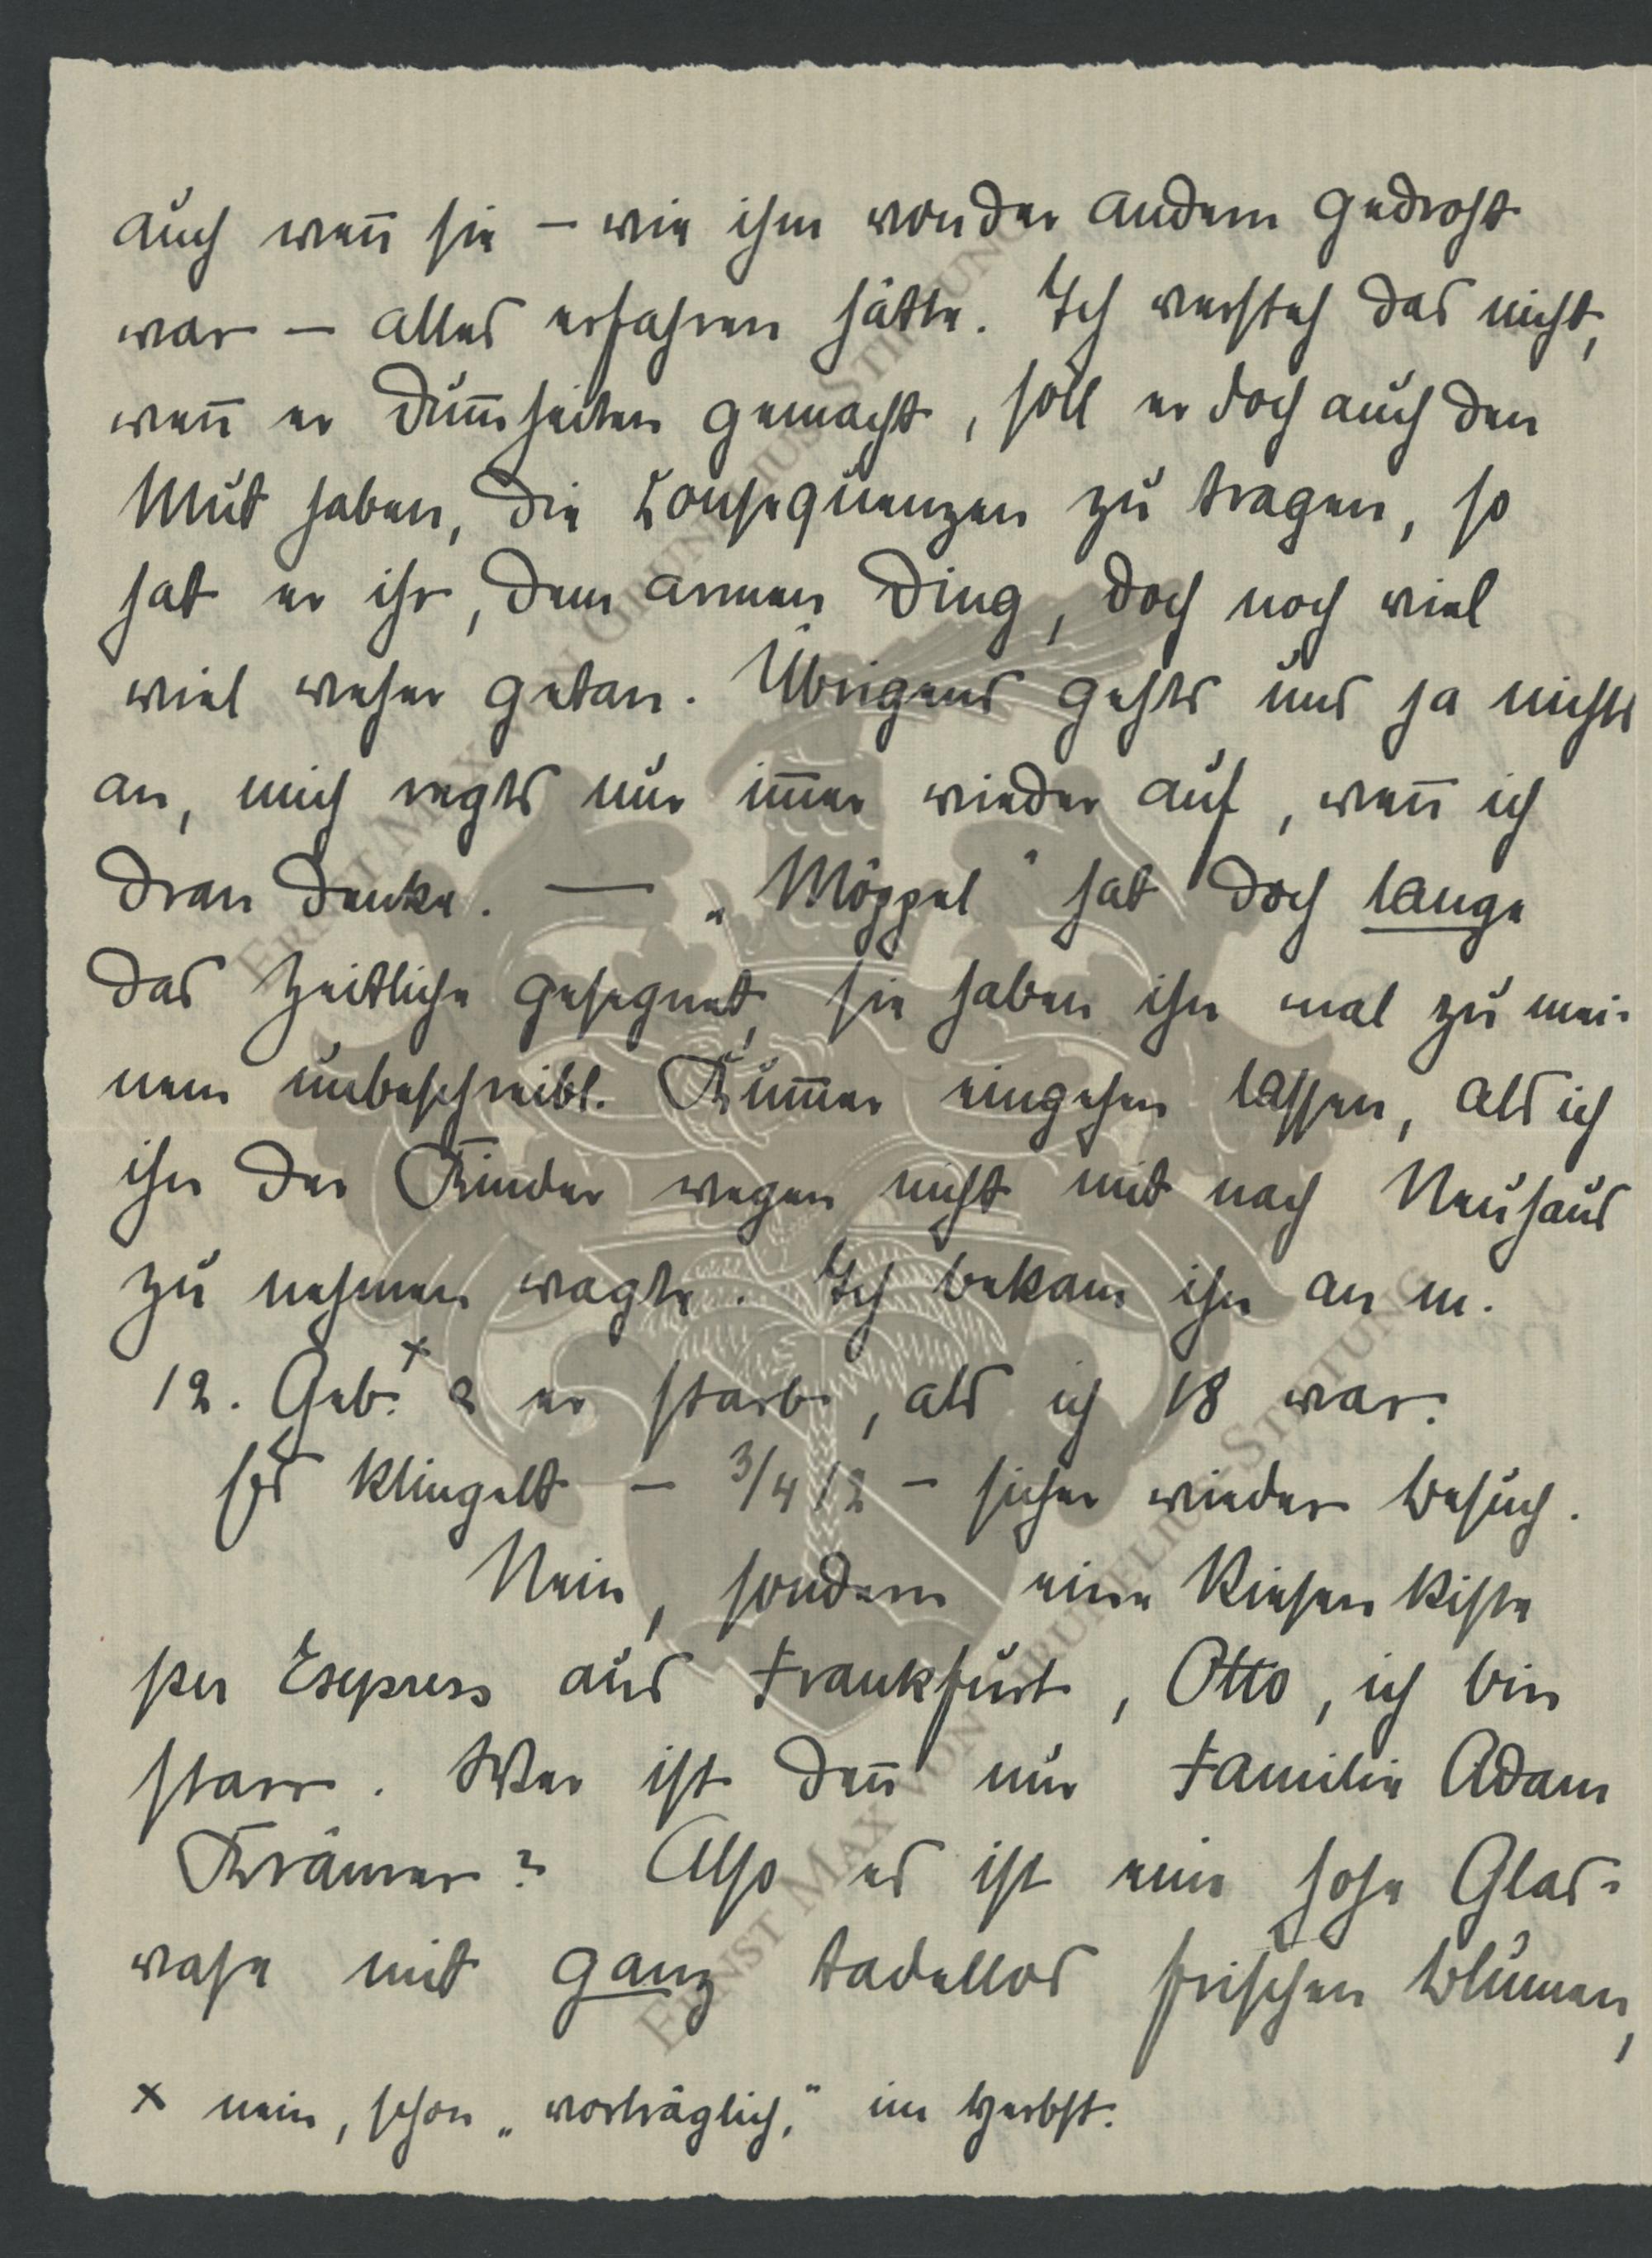 auch wen̄ sie – wie ihm von der andern gedroht
war – alles erfahren hätte. Ich versteh das nicht,
wen̄ er Dum̄heiten gemacht, soll er doch auch den
Mut haben, die Consequenzen zu tragen, so
hat er ihr, dem armen Ding, doch noch viel
viel weher getan. Übrigens gehts uns ja nichts
an, mich regts nur im̄er wieder auf, wen̄ ich
dran denke. — „Möppel" hat doch lange
das Zeitliche gesegnet, sie haben ihn mal zu mei-
nem unbeschreibl. Kum̄er eingehen lassen, als ich
ihn der Kinder wegen nicht mit nach Neuhaus
zu nehmen wagte. Ich bekam ihn an m.
12. Geb.x & er starb, als ich 18 war.
Es klingelt – 3/4 12 – sicher wieder Besuch.
Nein, sondern eine Riesenkiste
per Express aus Frankfurt, Otto, ich bin
starr. Wer ist den̄ nur Familie Adam
Krämer? Also es ist eine hohe Glas-
vase mit ganz tadellos frischen Blumen,
x nein, schon „vorträglich," im Herbst.
ERNST MAX VON GRUNELIUS-STIFTUNG
ERNST MAX VON GRUNELIUS-STIFTUNG